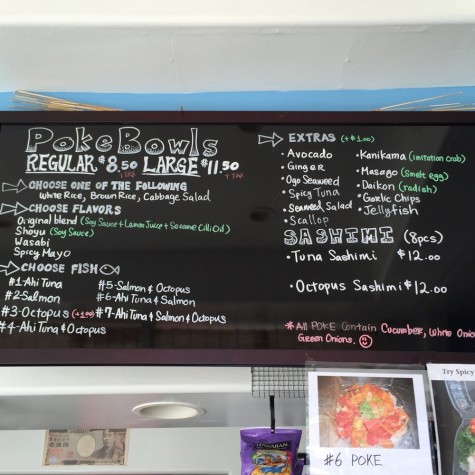 Poke Bowls
REGULAR $8.50 +TAX LARGE $11.50 +TAX
CHOOSE ONE OF THE FOLLOWING
White Rice, Brown Rice, Cabbage Salad
CHOOSE FLAVORS
Original blend (Soy Sauce + Lemon Juice + Sesame Chili Oil)
Shoyu (Soy Sauce)
Wasabi
Spicy Mayo
CHOOSE FISH
#1-Ahi Tuna
#2-Salmon
#3-Octopus (+1.00)
#4-Ahi Tuna & Octopus
#5-Salmon & Octopus
#6-Ahi Tuna & Salmon
#7-Ahi Tuna & Salmon & Octopus
EXTRAS (+$1.00)
• Avocado
• Ginger
• Ogo Seaweed
• Spicy Tuna
• Seaweed Salad
• Scallop
• Kanikama (imitation crab)
• Masago (smelt egg)
• Daikon (radish)
• Garlic Chips
• Jellyfish
SASHIMI (8pcs)
• Tuna Sashimi $12.00
• Octopus Sashimi $12.00
* All POKE Contain Cucumber, White Onio
Green Onions.
Try Spicy
#6 POKE
HAWAIIAN